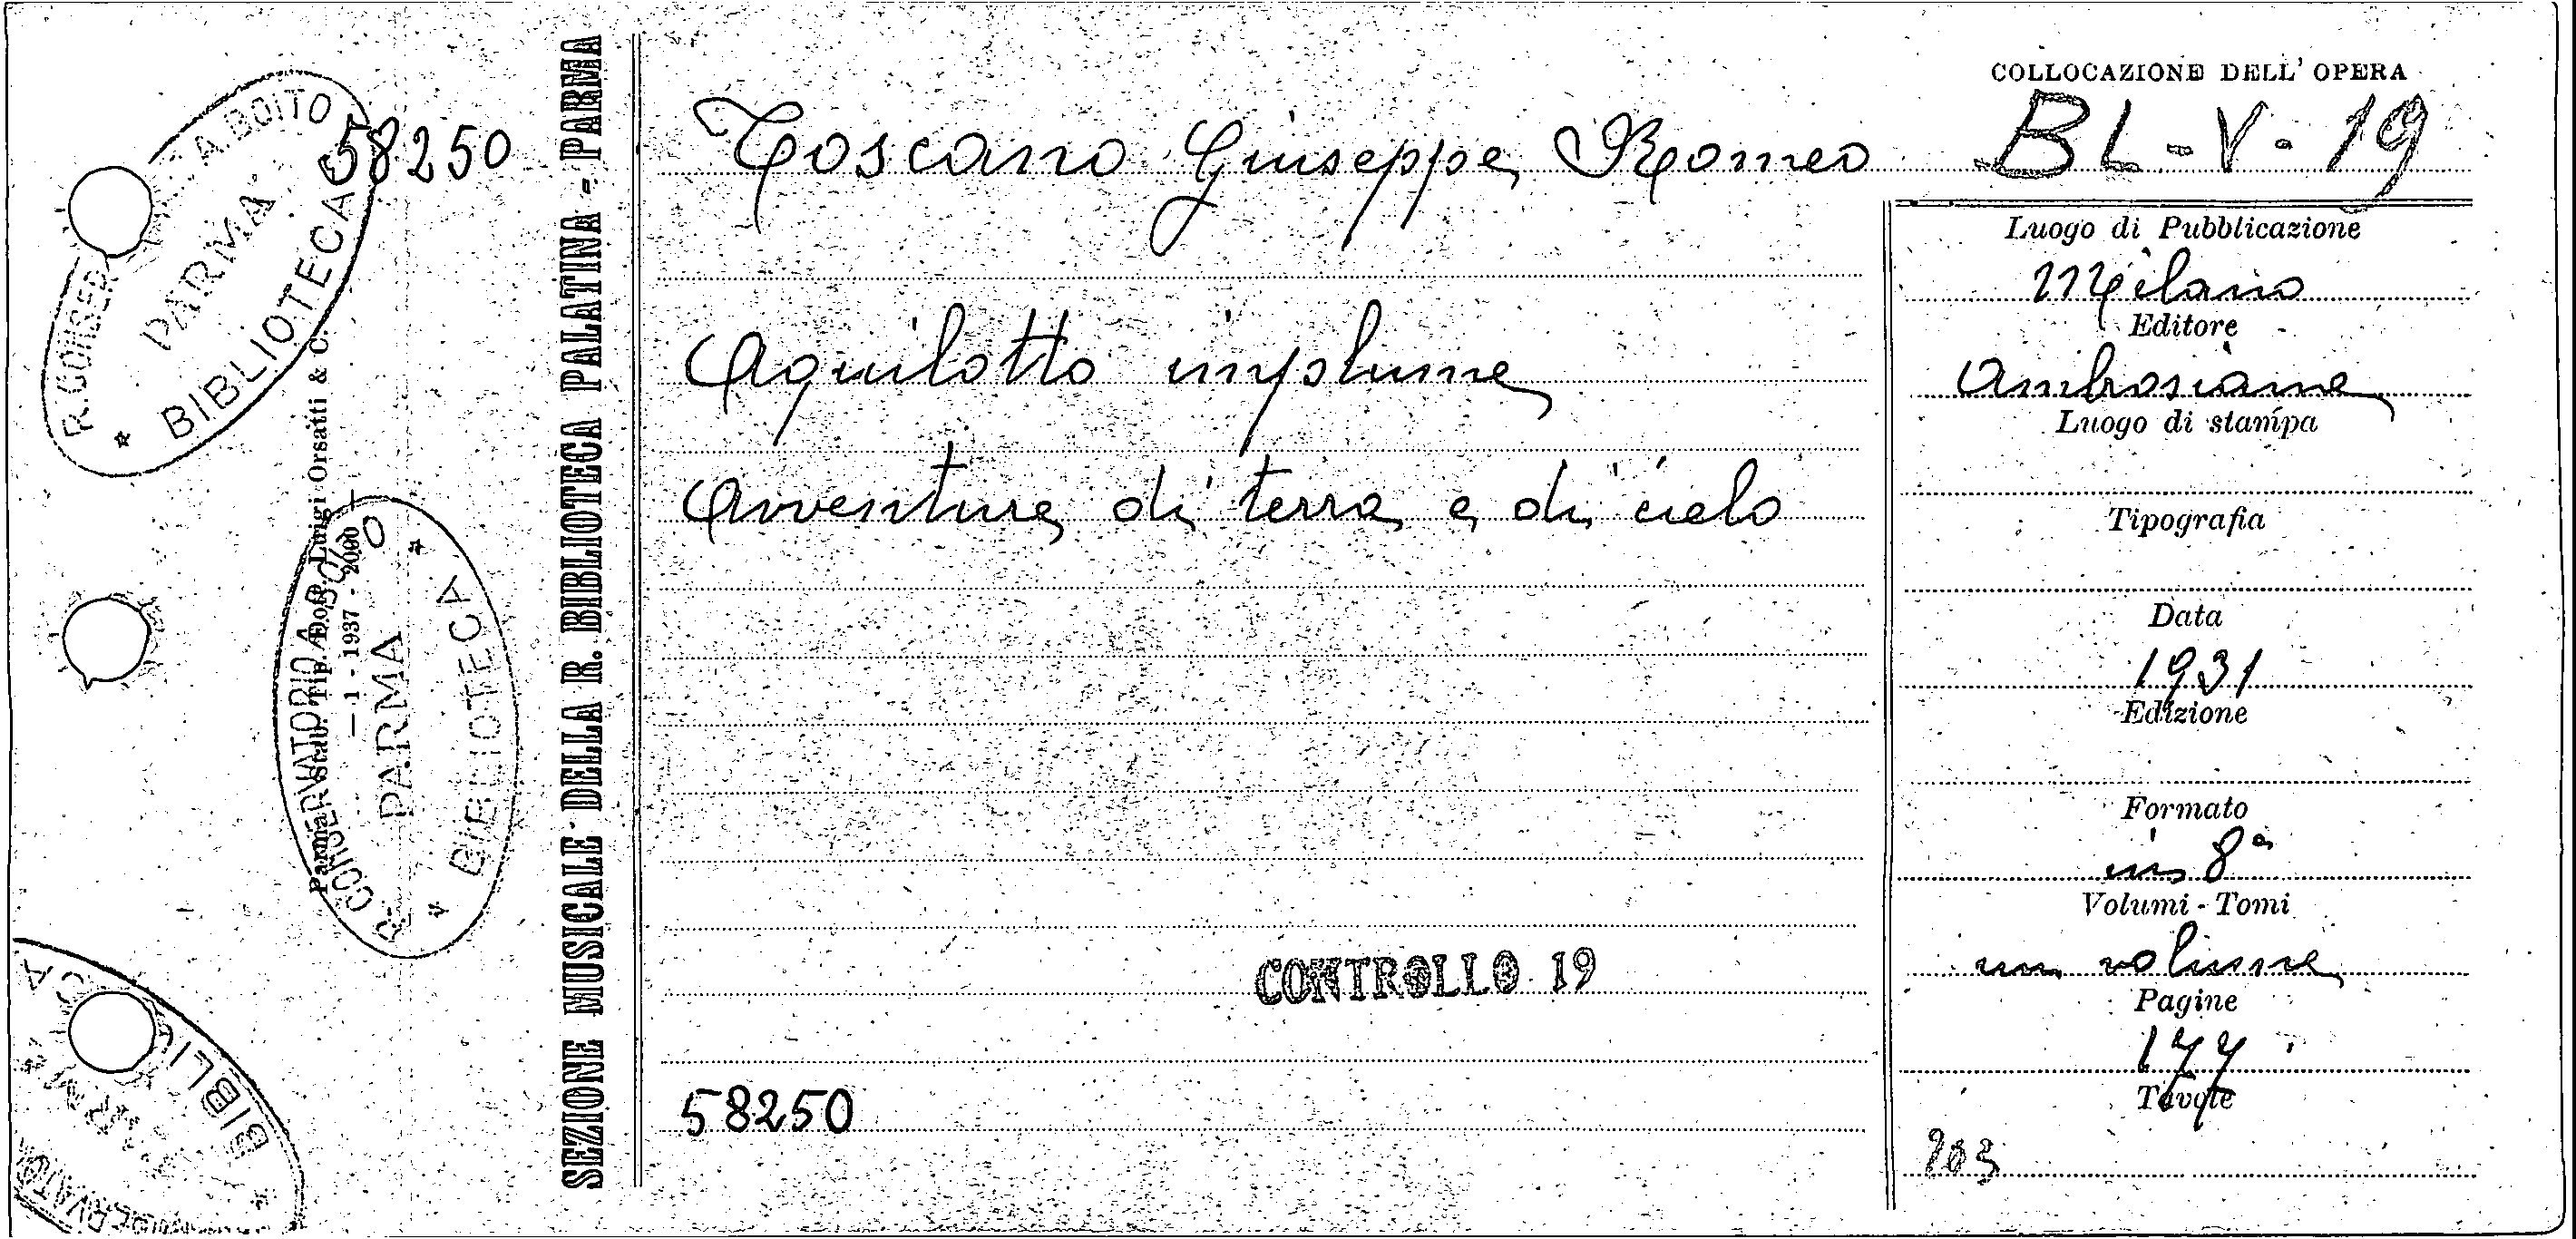 R. CONSER A. BOITO
PARMA
BIBLIOTECA
58250
R. CONSERVATORIO A. BOITO
PARMA
BIBLIOTECA
Parma, Stab. Tip. Dott. Luigi Orsatti & C.
— 1 - 1937 - 2000 —
BIBLIO CA
SEZIONE MUSICALE DELLA R. BIBLIOTECA PALATINA - PARMA
Toscano Giuseppe Romeo
Aquilotto implume
Avventure di terra e di cielo
CONTROLLO 19
58250
COLLOCAZIONE DELL' OPERA
BL-V-19
Luogo di Pubblicazione
Milano
Editore
Ambrosiana
Luogo di stampa
Tipografia
Data
1931
Edizione
Formato
in 8°
Volumi - Tomi
un volume
Pagine
177
Tavole